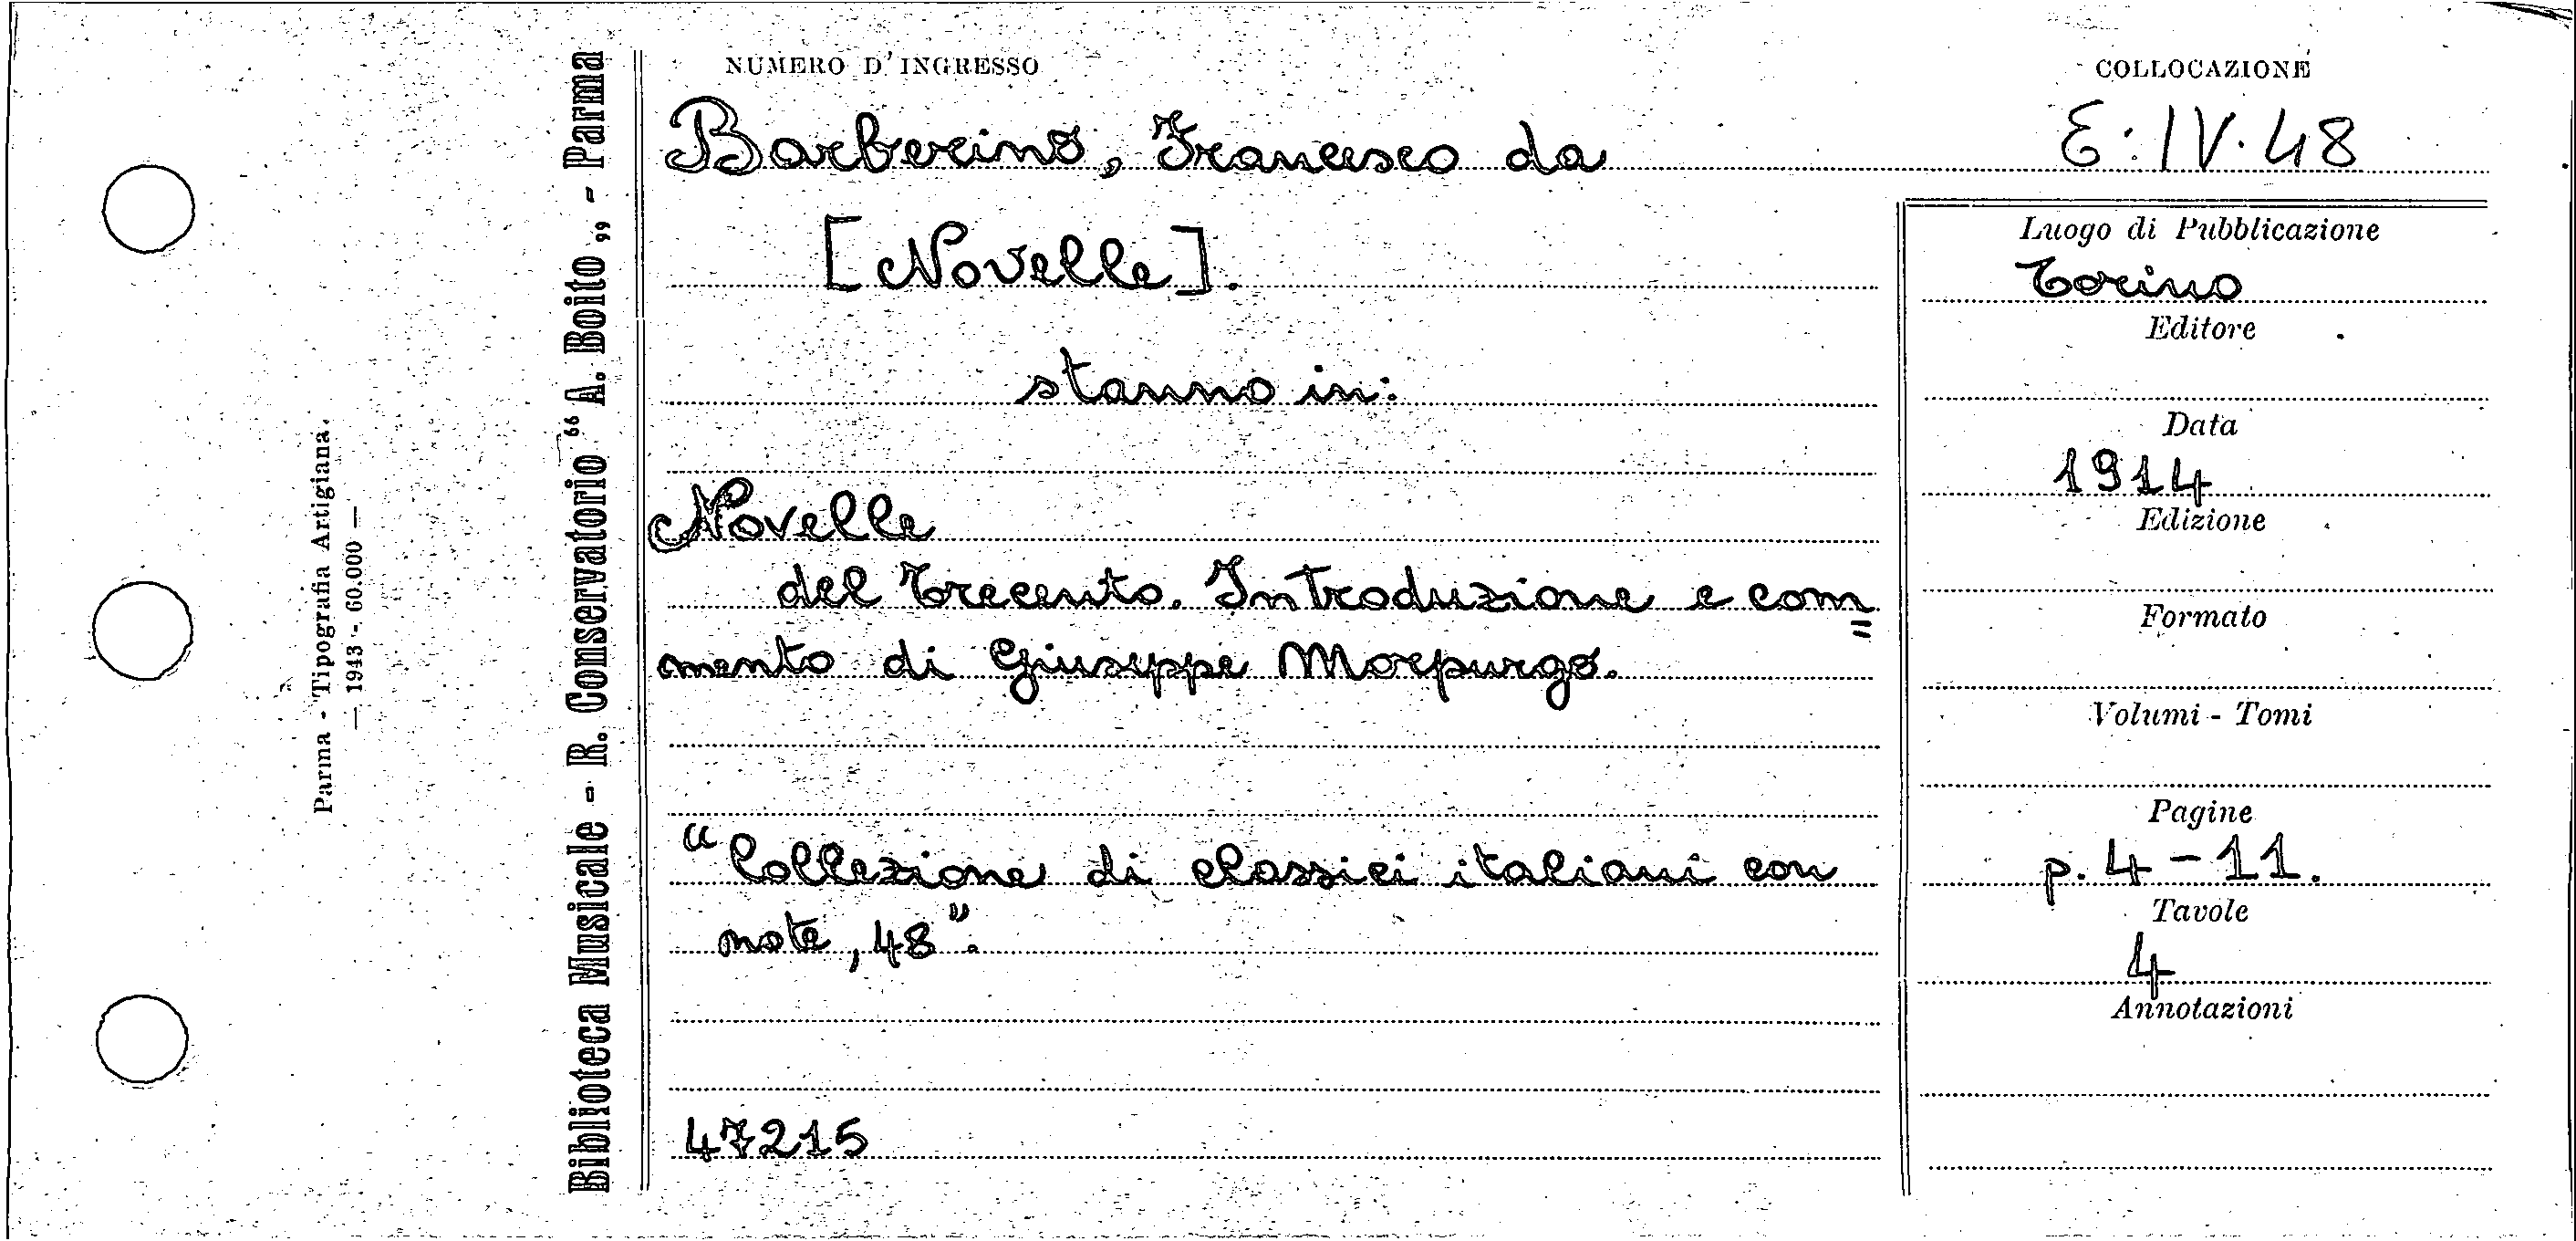 NUMERO D'INGRESSO
COLLOCAZIONE
Barberino, Francesco da
E. IV. 48
[Novelle].
stanno in:
Novelle
del Trecento. Introduzione e com=
mento di Giuseppe Morpurgo.
"Collezione di classici italiani con
note, 48".
47215
Luogo di Pubblicazione
Torino
Editore
Data
1914
Edizione
Formato
Volumi - Tomi
Pagine
p. 4-11.
Tavole
4
Annotazioni
Biblioteca Musicale - R. Conservatorio “ A. Boito „ - Parma
Parma - Tipografia Artigiana.
— 1943 - 60.000 —